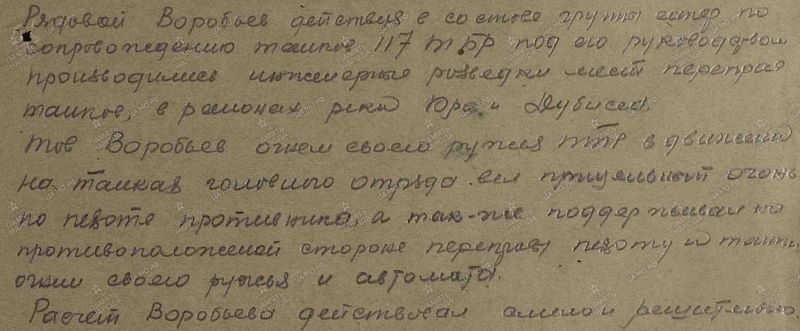 Рядовой Воробьев действуя в составе группы сапер по
сопровождению танков 117 ТБР под его руководством
производились инженерные розведки мест переправ
танков, в районах реки Юра и Дубисса,
Тов Воробьев огнем своего ружья ПТР в движении
на танках головного отряда вел прицельный огонь
по пехоте противника, а так-же поддерживал на
противоположной стороне переправы пехоту и танки
огнем своего ружья и автомата.
Расчет Воробьева действовал смело и решительно